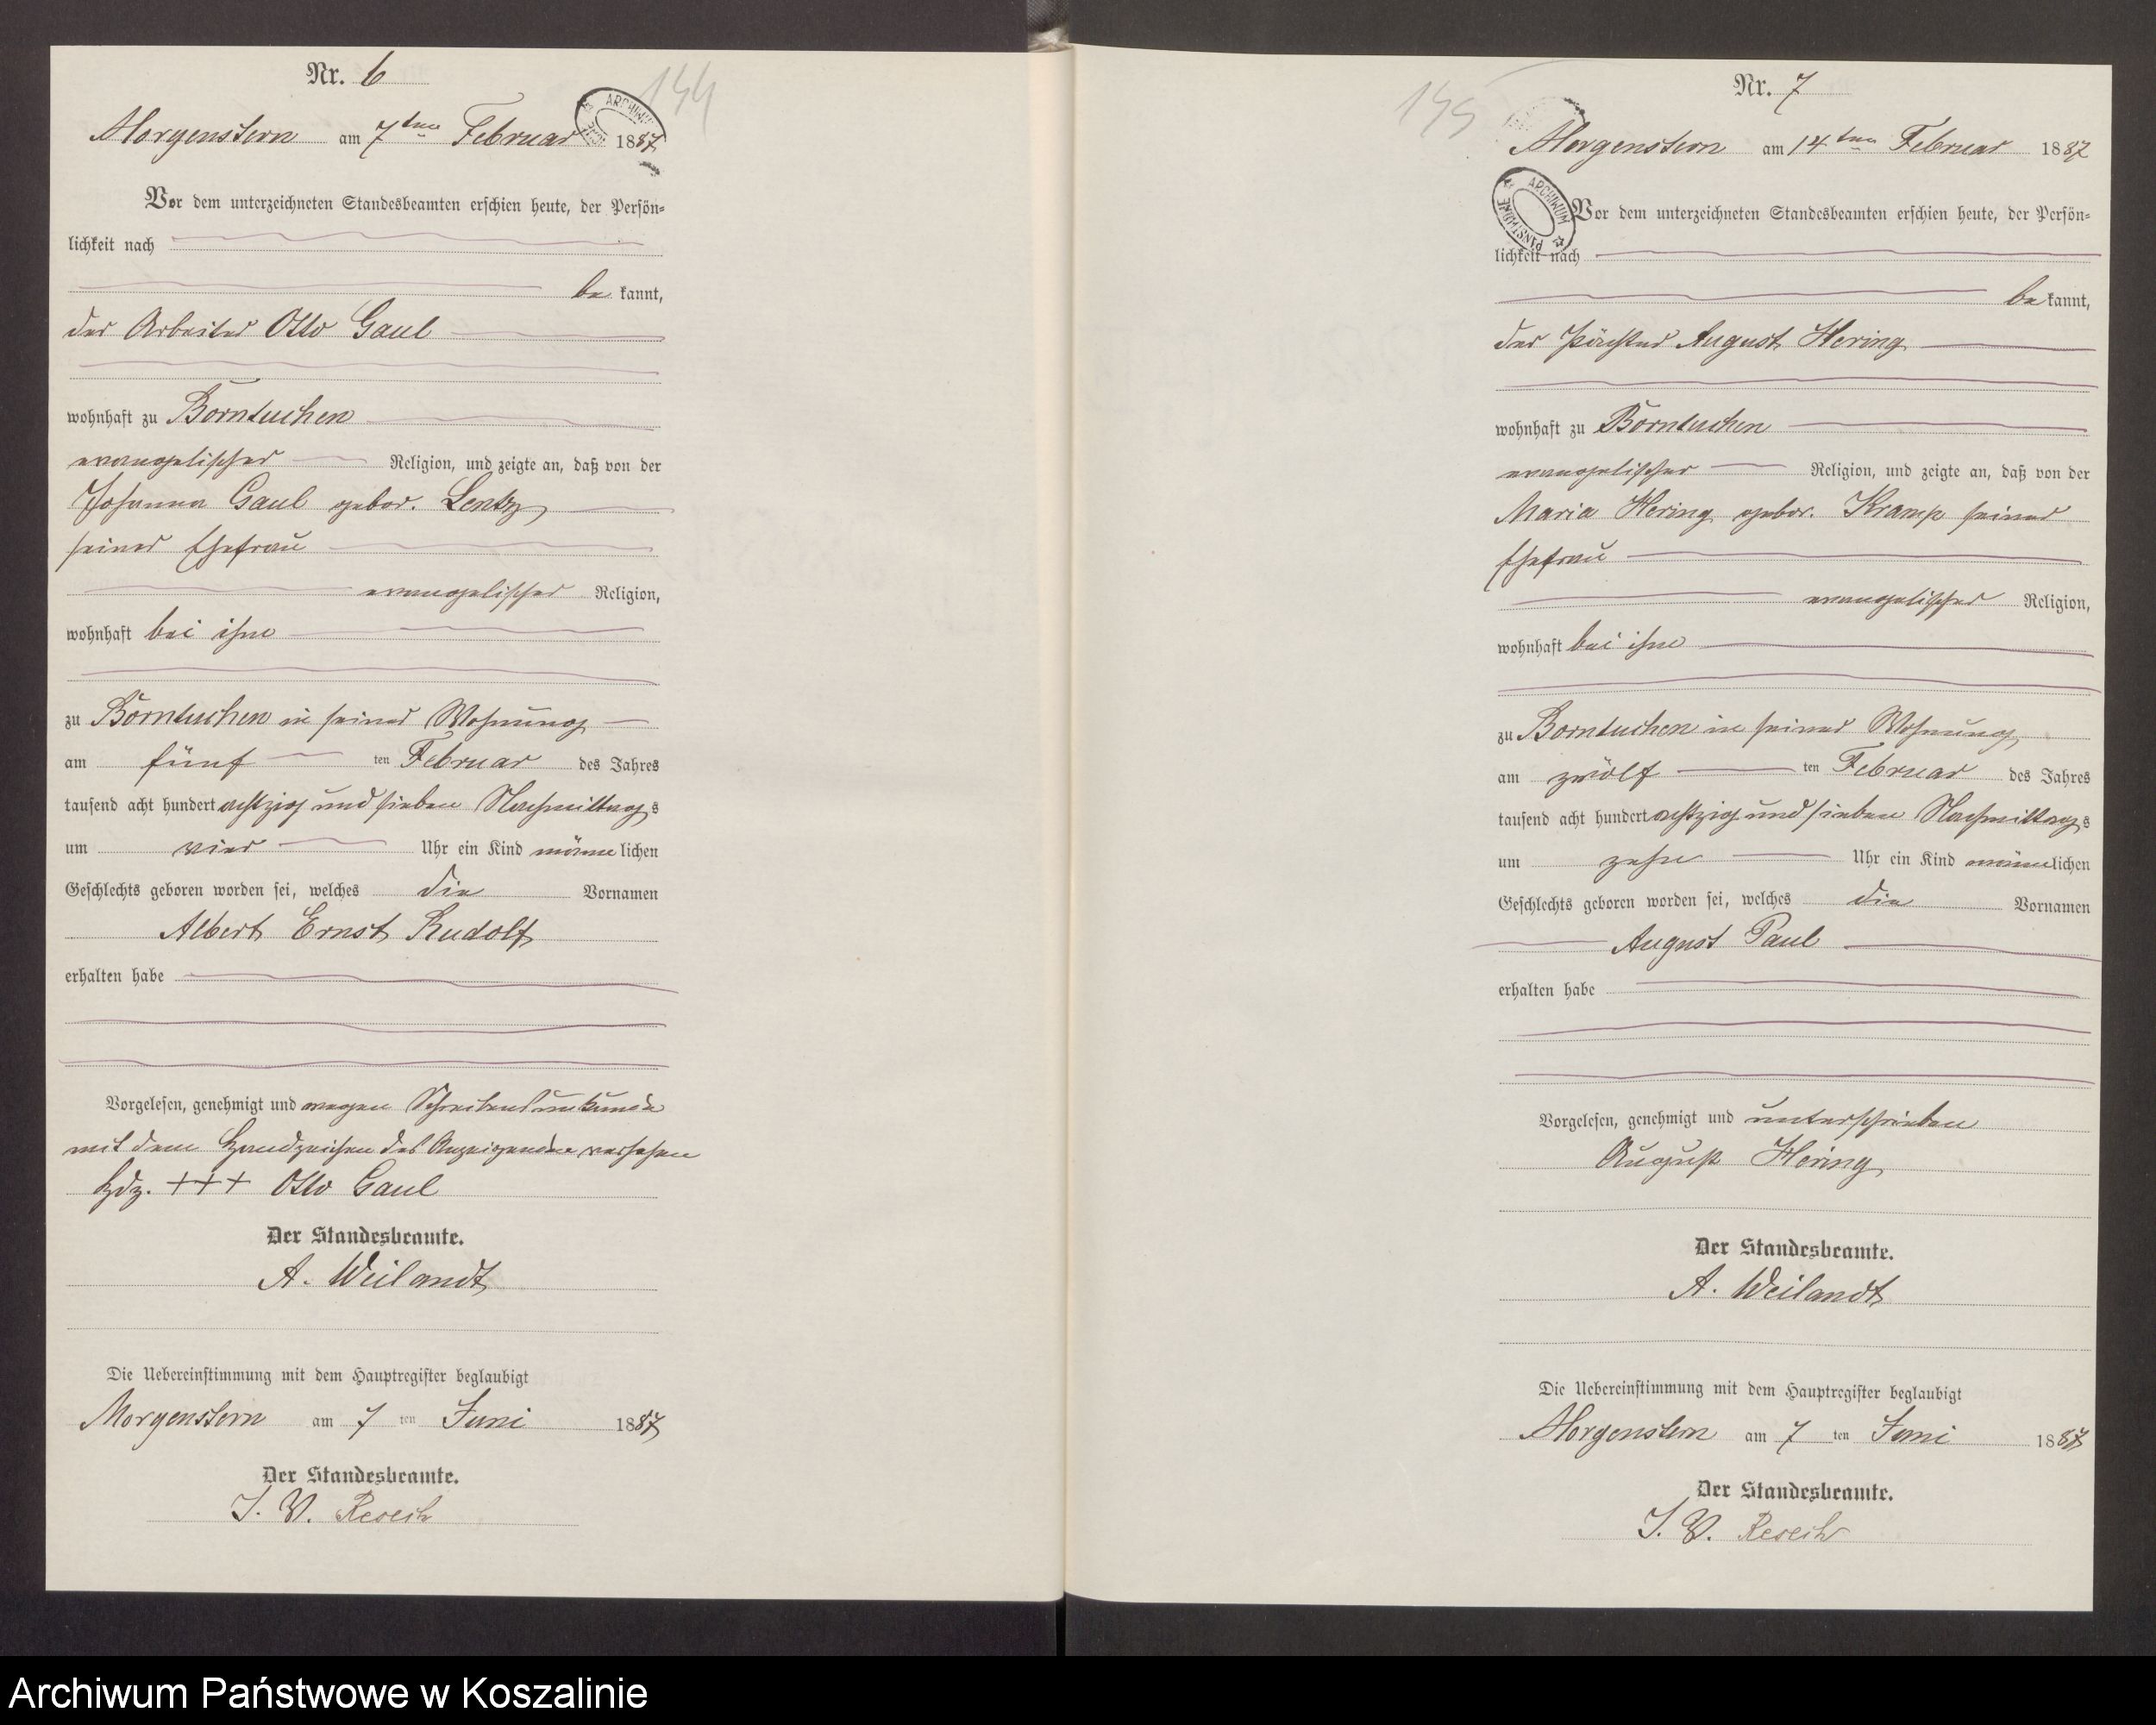 Nr. 6
144
Morgenstern am 7ten Februar 1887
ARCHIWUM
Vor dem unterzeichneten Standesbeamten erschien heute, der Persön-
lichkeit nach
be kannt,
der Arbeiter Otto Gaul
wohnhaft zu Borntuchen
evangelischer Religion, und zeigte an, daß von der
Johanna Gaul gebor. Lentz,
seiner Ehefrau
evangelischer Religion,
wohnhaft bei ihm
zu Borntuchen in seiner Wohnung
am fünf ten Februar des Jahres
tausend acht hundert achtzig und sieben Nachmittags
um vier Uhr ein Kind männlichen
Geschlechts geboren worden sei, welches die Vornamen
Albert Ernst Rudolf
erhalten habe
Vorgelesen, genehmigt und wegen Schreibensunkunde
mit dem Handzeichen des Anzeigenden versehen
Hdz. +++ Otto Gaul
Der Standesbeamte.
A. Weilandt
Die Uebereinstimmung mit dem Hauptregister beglaubigt
Morgenstern am 7 ten Juni 1887
Der Standesbeamte.
I. V.
Nr. 7
145
Morgenstern am 14ten Februar 1887
ARCHIWUM PAŃSTWOWE
Vor dem unterzeichneten Standesbeamten erschien heute, der Persön-
lichkeit nach
be kannt,
der Pächter August Hering
wohnhaft zu Borntuchen
evangelischer Religion, und zeigte an, daß von der
Maria Hering gebor. Kramp seiner
Ehefrau
evangelischer Religion,
wohnhaft bei ihm
zu Borntuchen in seiner Wohnung
am zwölf ten Februar des Jahres
tausend acht hundert achtzig und sieben Nachmittags
um zehn Uhr ein Kind männlichen
Geschlechts geboren worden sei, welches die Vornamen
August Paul
erhalten habe
Vorgelesen, genehmigt und unterschrieben
August Hering
Der Standesbeamte.
A. Weilandt
Die Uebereinstimmung mit dem Hauptregister beglaubigt
Morgenstern am 7 ten Juni 1887
Der Standesbeamte.
I. V.
Archiwum Państwowe w Koszalinie